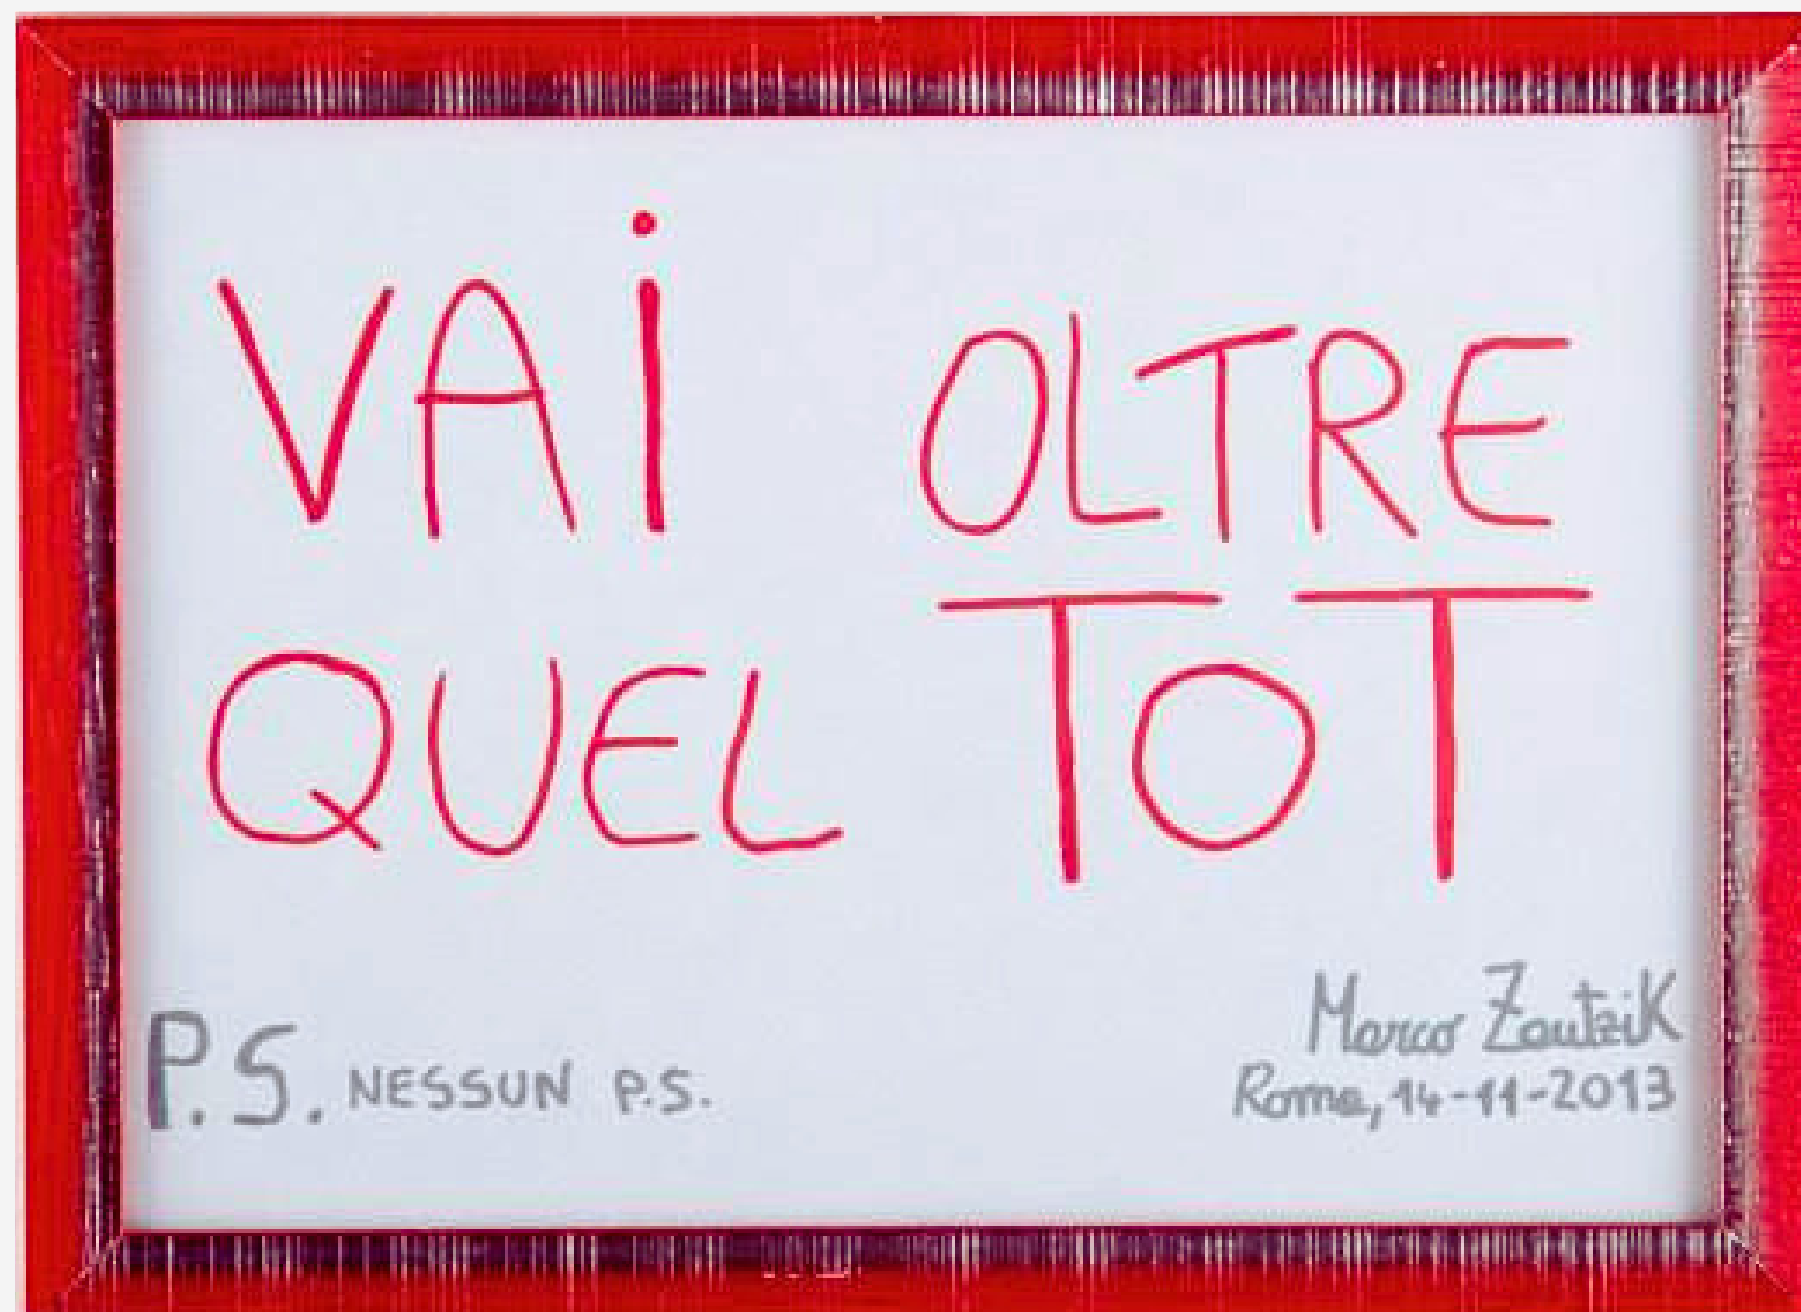 VAi OLTRE
QUEL TOT
P.S. NESSUN P.S.
Marco ZautziK
Roma, 14-11-2013